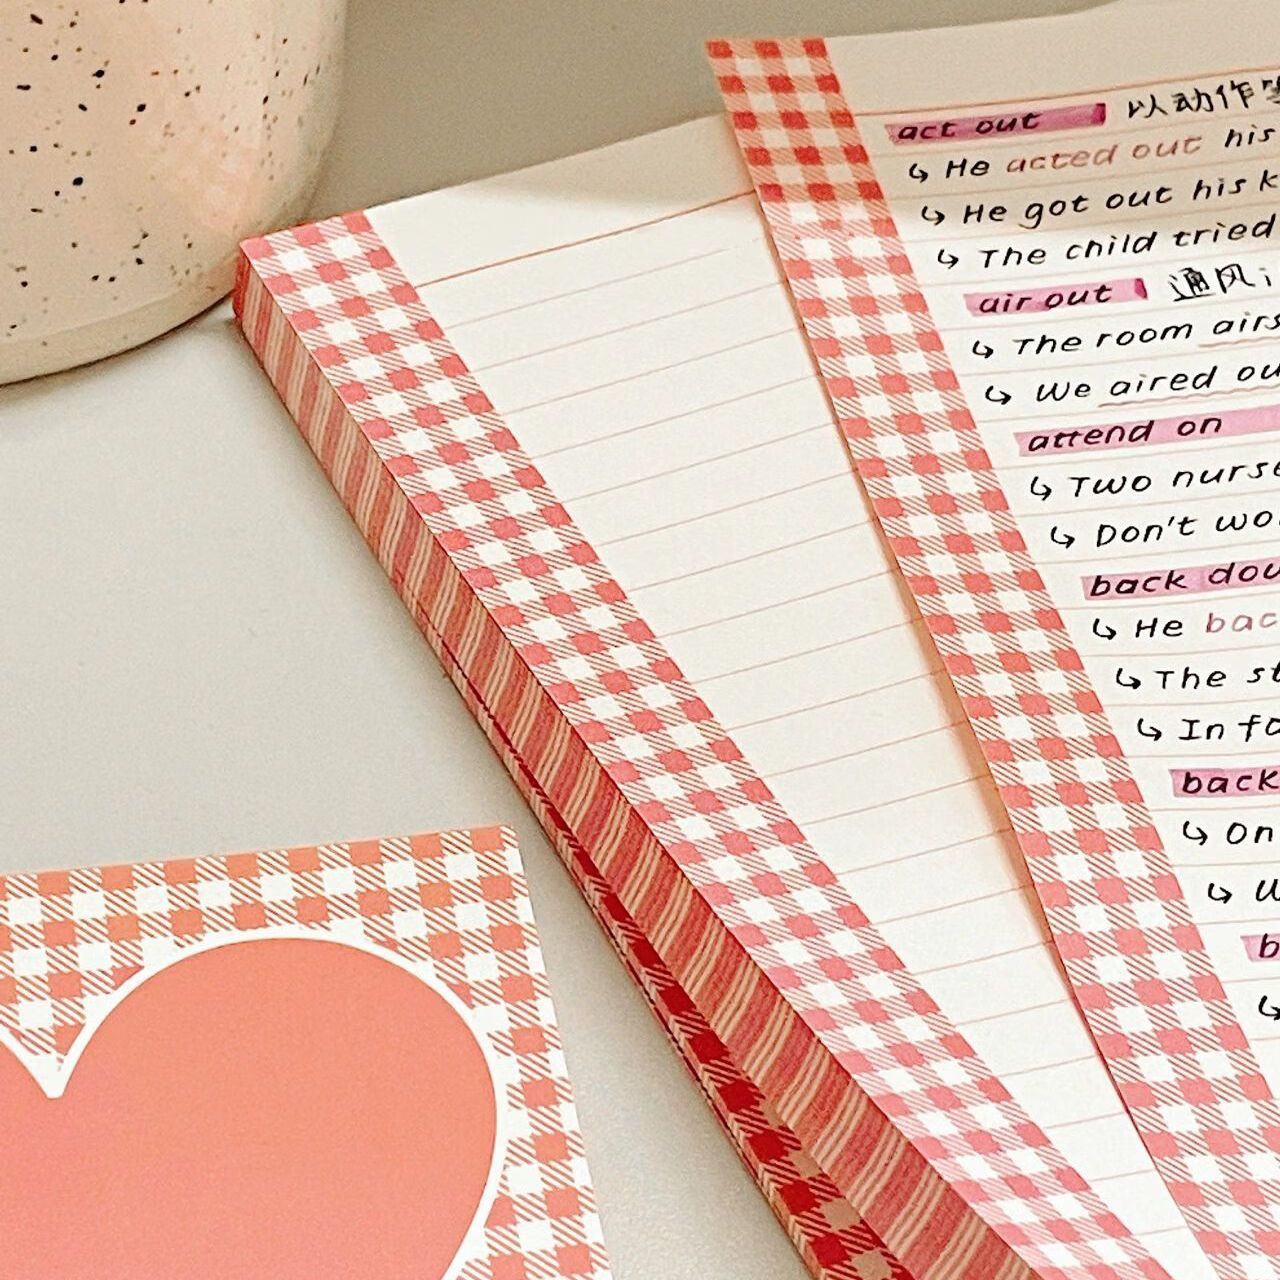 act out 以动作等
↳ He acted out his
↳ He got out his k
↳ The child tried
air out 通风;
↳ The room airs
↳ We aired ou
attend on
↳ Two nurse
↳ Don't wo
back dow
↳ He bac
↳ The st
↳ In fa
back
↳ On
↳ W
b
↳